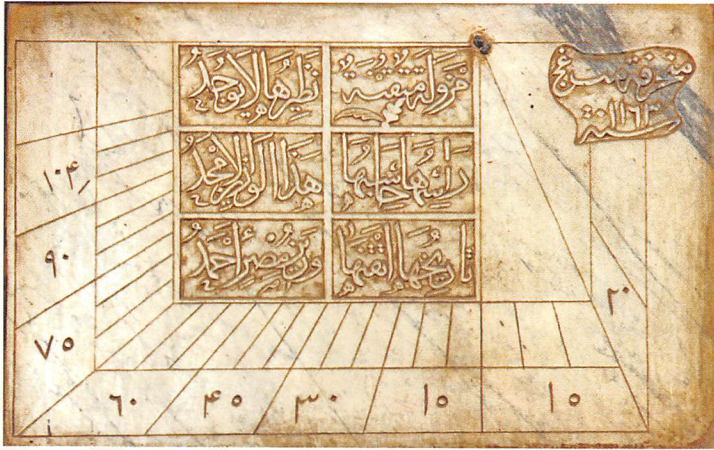 مزولة متقنة نظيرها لا يوجد
راسمها حاسبها هذا الوزير الامجد
تاريخها اتقنها وزير مصر أحمد
منحرفة
سنة ١١٦٣
١٠٤
٩٠
٧٥
٢٠
٦٠ ٤٥ ٣٠ ١٥ ١٥